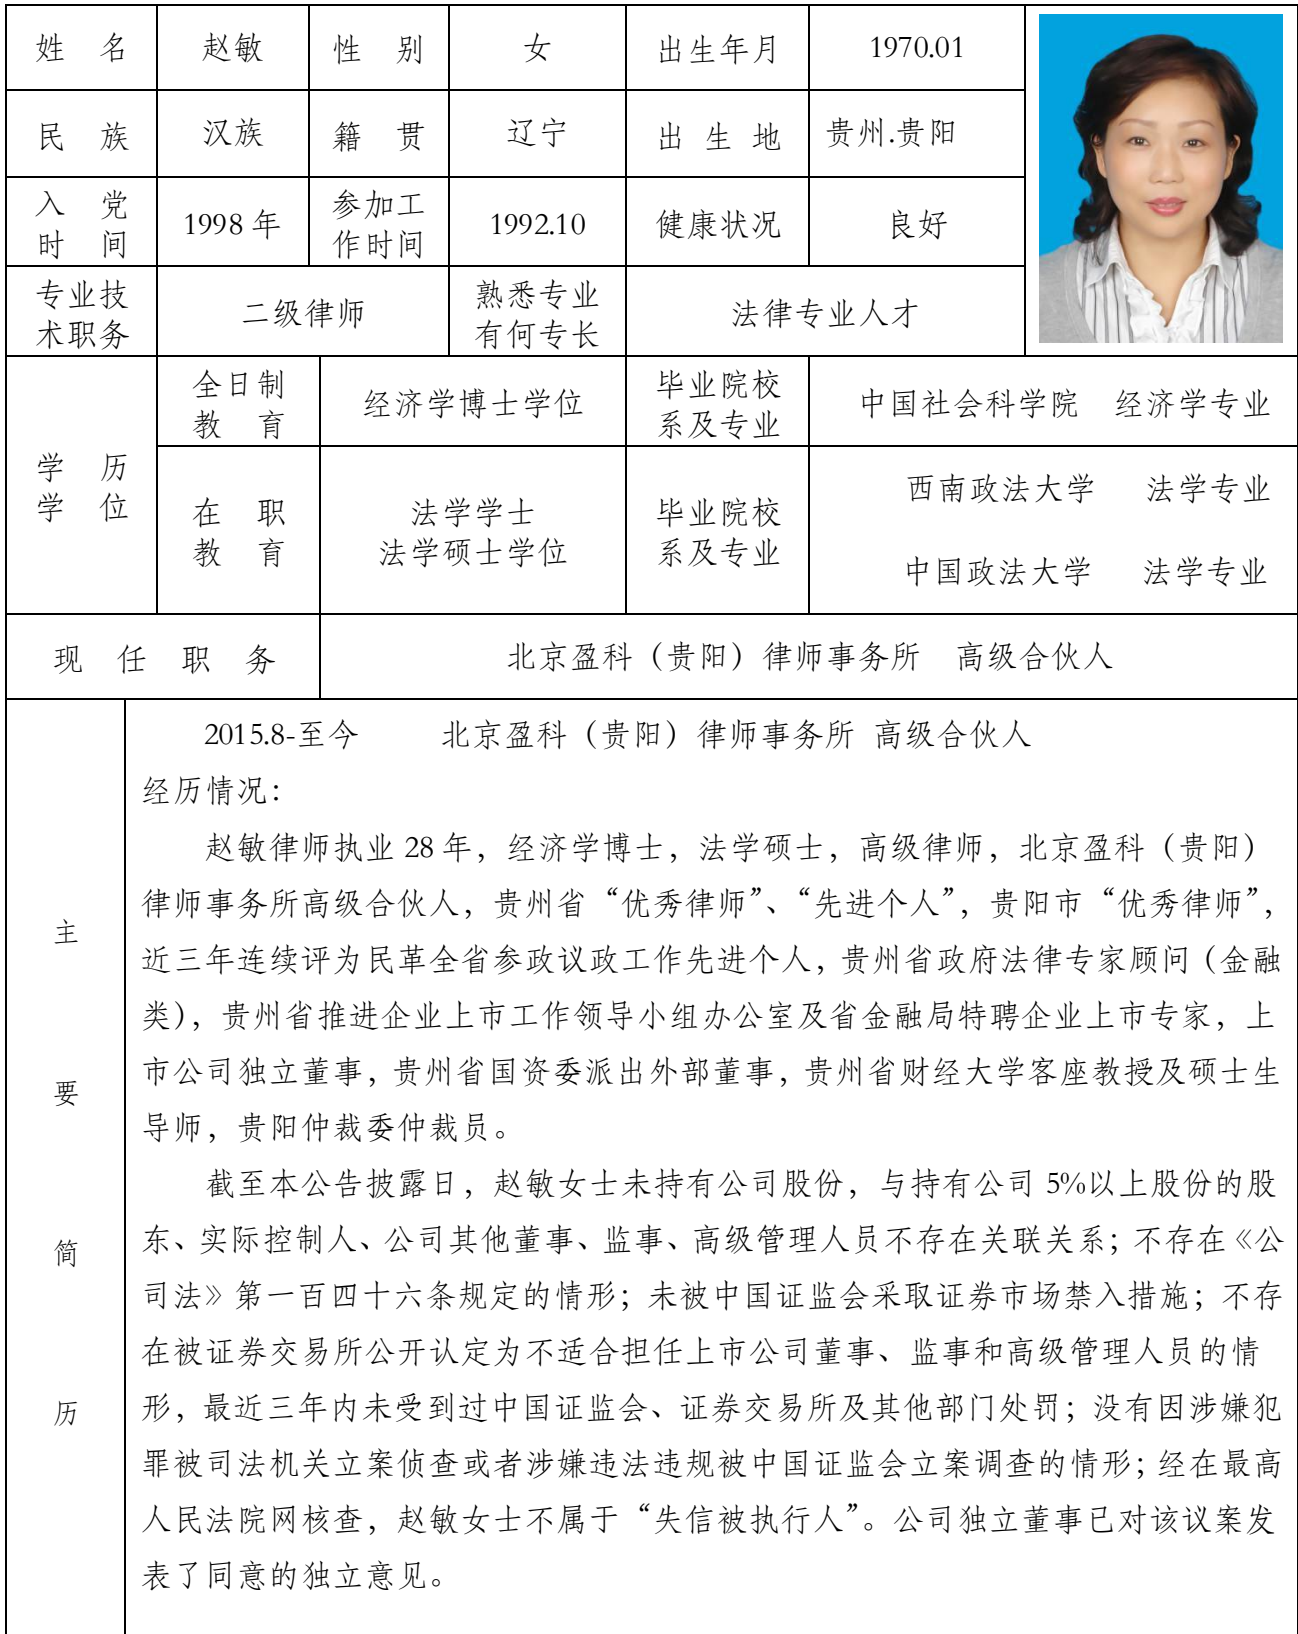 姓 名 赵敏 性 别 女 出生年月 1970.01
民 族 汉族 籍 贯 辽宁 出 生 地 贵州.贵阳
入 党
时 间
1998 年
参加工
作时间
1992.10 健康状况 良好
专业技
术职务
二级律师
熟悉专业
有何专长
法律专业人才
学 历
学 位
全日制
教 育
经济学博士学位
毕业院校
系及专业
中国社会科学院 经济学专业
在 职
教 育
法学学士
法学硕士学位
毕业院校
系及专业
西南政法大学 法学专业
中国政法大学 法学专业
现 任 职 务 北京盈科（贵阳）律师事务所 高级合伙人
主
要
简
历
2015.8-至今 北京盈科（贵阳）律师事务所 高级合伙人
经历情况：
赵敏律师执业 28 年，经济学博士，法学硕士，高级律师，北京盈科（贵阳）
律师事务所高级合伙人，贵州省“优秀律师”、“先进个人”，贵阳市“优秀律师”，
近三年连续评为民革全省参政议政工作先进个人，贵州省政府法律专家顾问（金融
类），贵州省推进企业上市工作领导小组办公室及省金融局特聘企业上市专家，上
市公司独立董事，贵州省国资委派出外部董事，贵州省财经大学客座教授及硕士生
导师，贵阳仲裁委仲裁员。
截至本公告披露日，赵敏女士未持有公司股份，与持有公司 5%以上股份的股
东、实际控制人、公司其他董事、监事、高级管理人员不存在关联关系；不存在《公
司法》第一百四十六条规定的情形；未被中国证监会采取证券市场禁入措施；不存
在被证券交易所公开认定为不适合担任上市公司董事、监事和高级管理人员的情
形，最近三年内未受到过中国证监会、证券交易所及其他部门处罚；没有因涉嫌犯
罪被司法机关立案侦查或者涉嫌违法违规被中国证监会立案调查的情形；经在最高
人民法院网核查，赵敏女士不属于“失信被执行人”。公司独立董事已对该议案发
表了同意的独立意见。